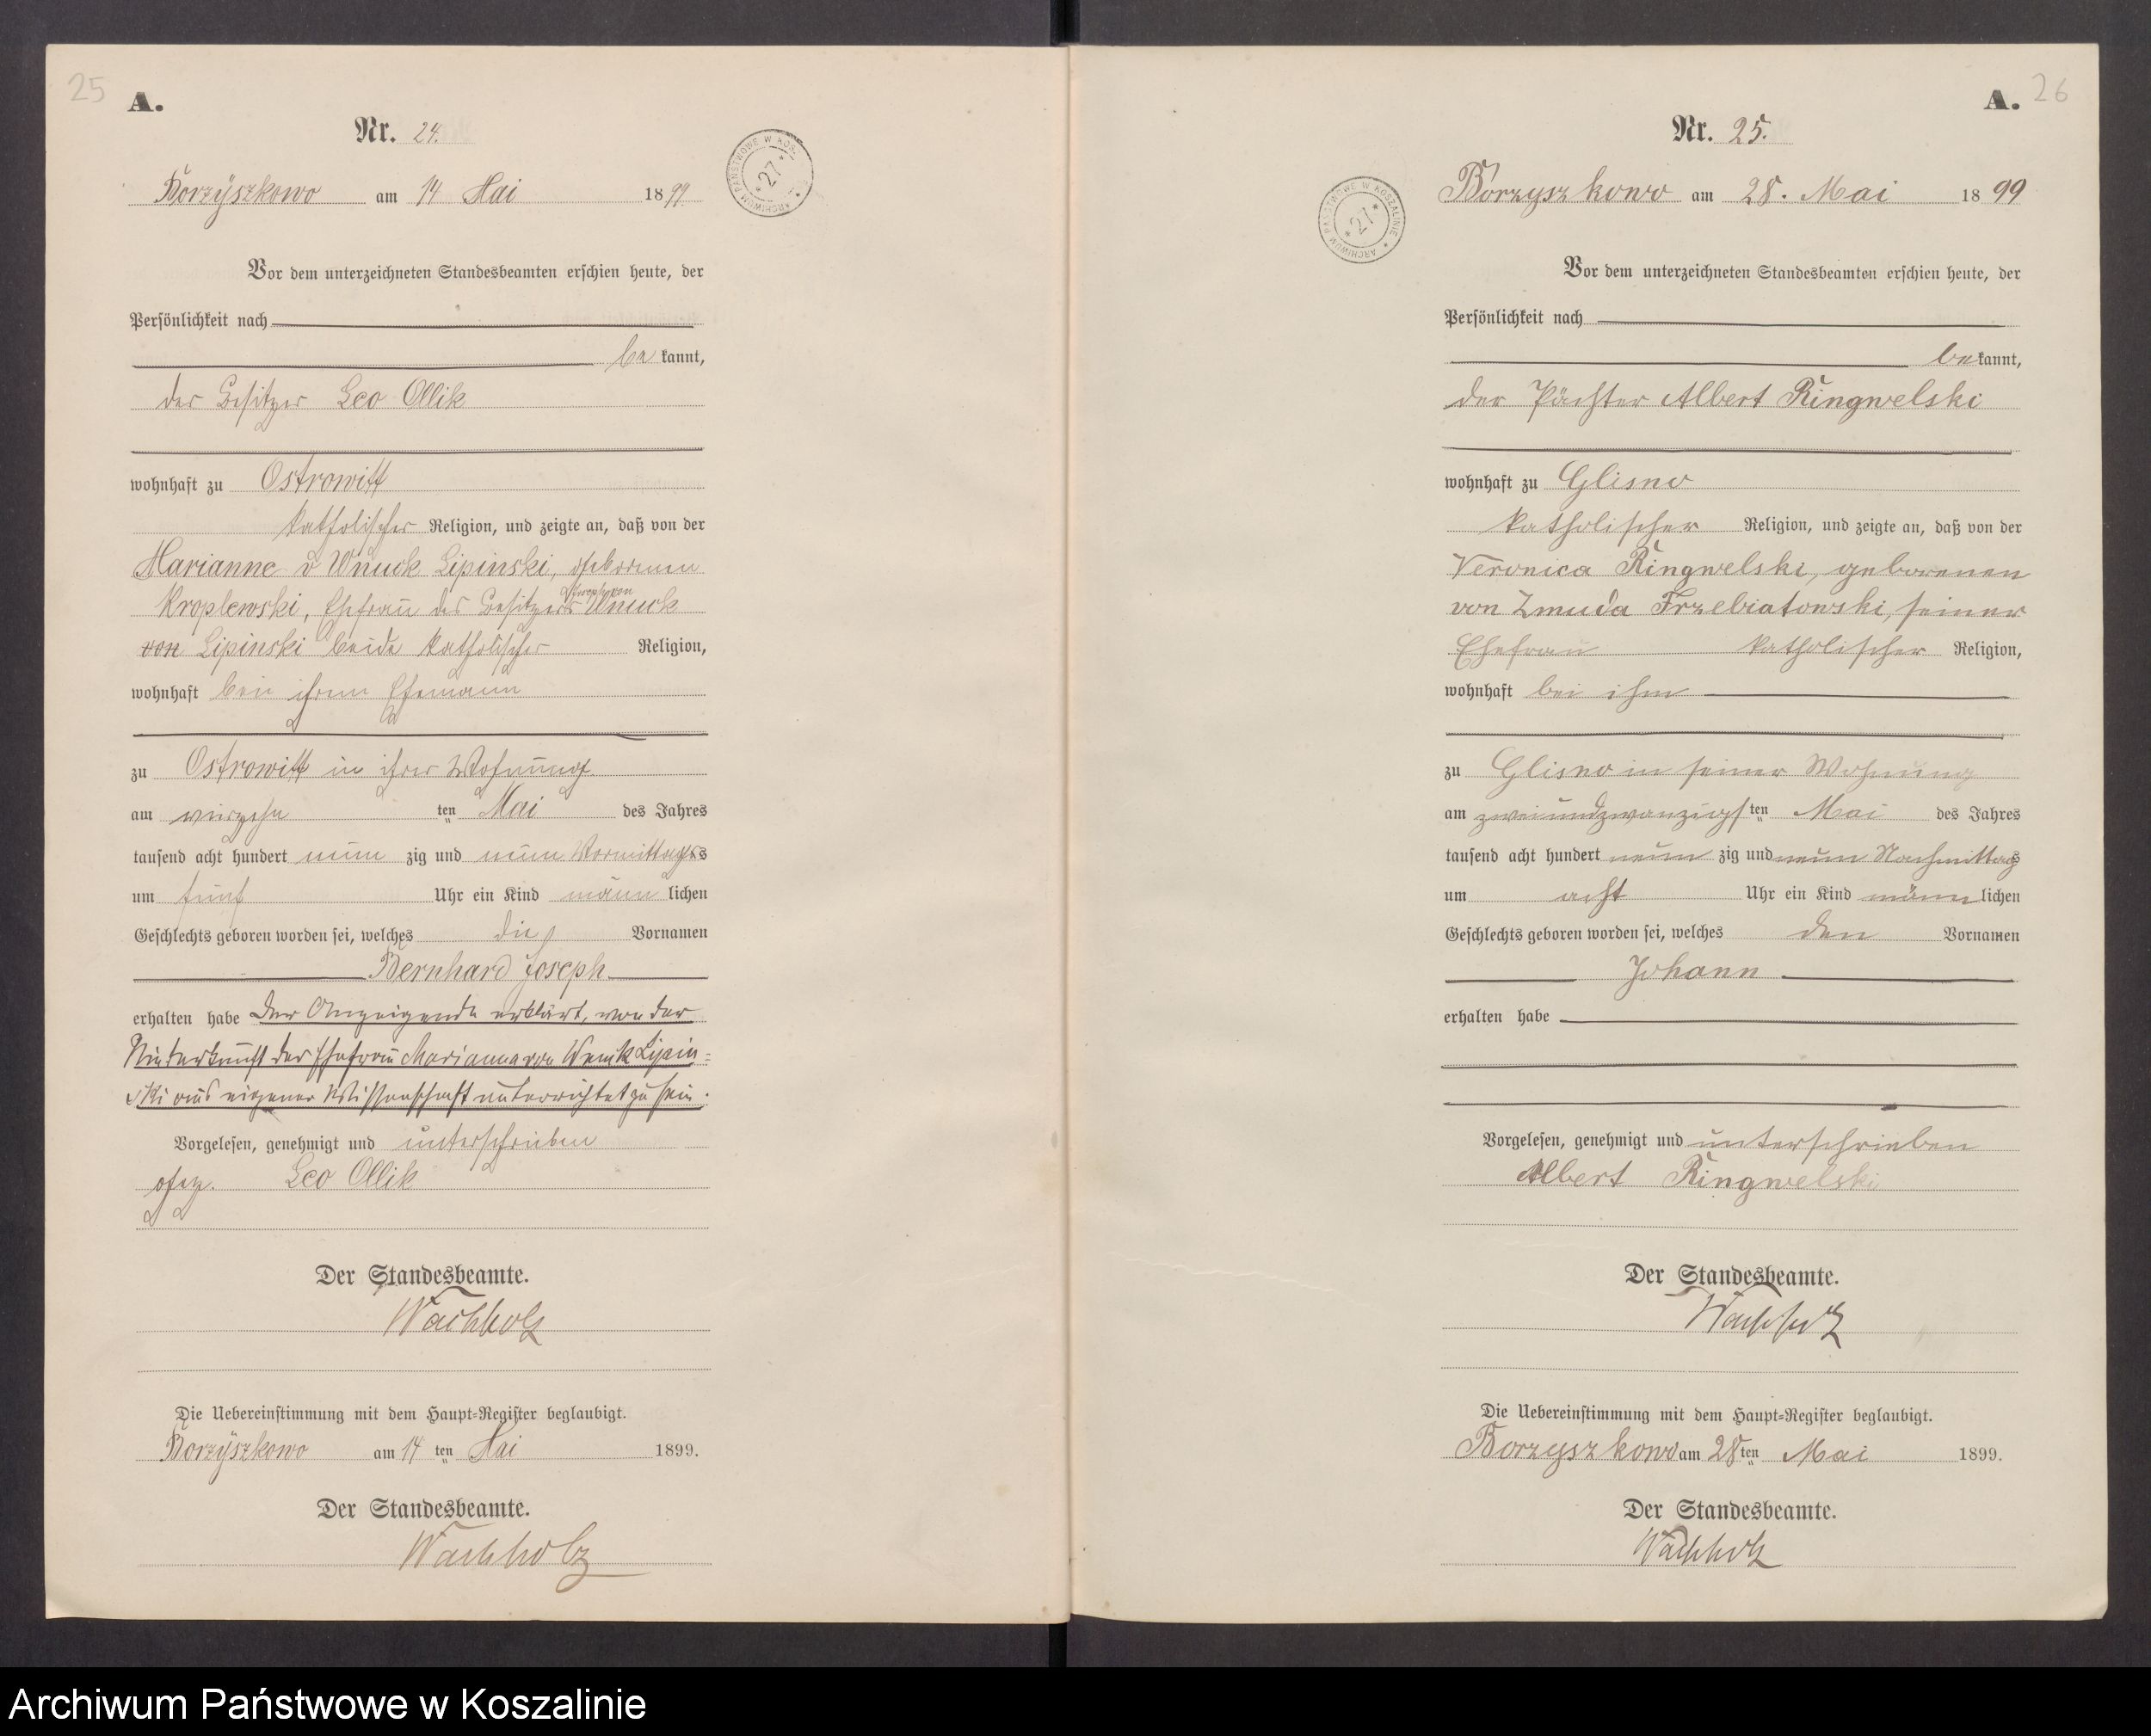 25
A.
Nr. 24.
Borzÿszkowo am 14 Mai 1899.
Vor dem unterzeichneten Standesbeamten erschien heute, der
Persönlichkeit nach
be kannt,
der Besitzer Leo Ollik
wohnhaft zu Ostrowitt
katholischer Religion, und zeigte an, daß von der
Marianne v Wnuck Lipinski, geborenen
Kroplewski, Ehefrau des Besitzers von Wnuck
von Lipinski beide katholischer Religion,
wohnhaft bei ihrem Ehemann
zu Ostrowitt in ihrer Wohnung
am vierzehn ten Mai des Jahres
tausend acht hundert neun zig und neun Vormittags
um fünf Uhr ein Kind männ lichen
Geschlechts geboren worden sei, welches die Vornamen
Bernhard Joseph
erhalten habe Der Anzeigende erklärt, von der
Niederkunft der Ehefrau Marianna von Wnuk Lipin=
ski aus eigener Wissenschaft unterrichtet zu sein.
Vorgelesen, genehmigt und unterschrieben
gez. Leo Ollik
Der Standesbeamte.
Wachholz
Die Uebereinstimmung mit dem Haupt=Register beglaubigt.
Borzÿszkowo am 14 ten Mai 1899.
Der Standesbeamte.
Wachholz
ARCHIWUM PAŃSTWOWE W KOS
* 27 *
A. 26
Nr. 25.
Borzyszkowo am 28. Mai 1899
ARCHIWUM PAŃSTWOWE W KOSZALINIE
* 27 *
Vor dem unterzeichneten Standesbeamten erschien heute, der
Persönlichkeit nach
be kannt,
der Pächter Albert Ringwelski
wohnhaft zu Glisno
katholischer Religion, und zeigte an, daß von der
Veronica Ringwelski, geborenen
von Zmuda Trzebiatowski, seiner
Ehefrau katholischer Religion,
wohnhaft bei ihm
zu Glisno in seiner Wohnung
am zweiundzwanzigsten Mai des Jahres
tausend acht hundert neun zig und neun Nachmittags
um acht Uhr ein Kind männ lichen
Geschlechts geboren worden sei, welches den Vornamen
Johann
erhalten habe
Vorgelesen, genehmigt und unterschrieben
Albert Ringwelski
Der Standesbeamte.
Wachholz
Die Uebereinstimmung mit dem Haupt=Register beglaubigt.
Borzyszkowo am 28 ten Mai 1899.
Der Standesbeamte.
Wachholz
Archiwum Państwowe w Koszalinie